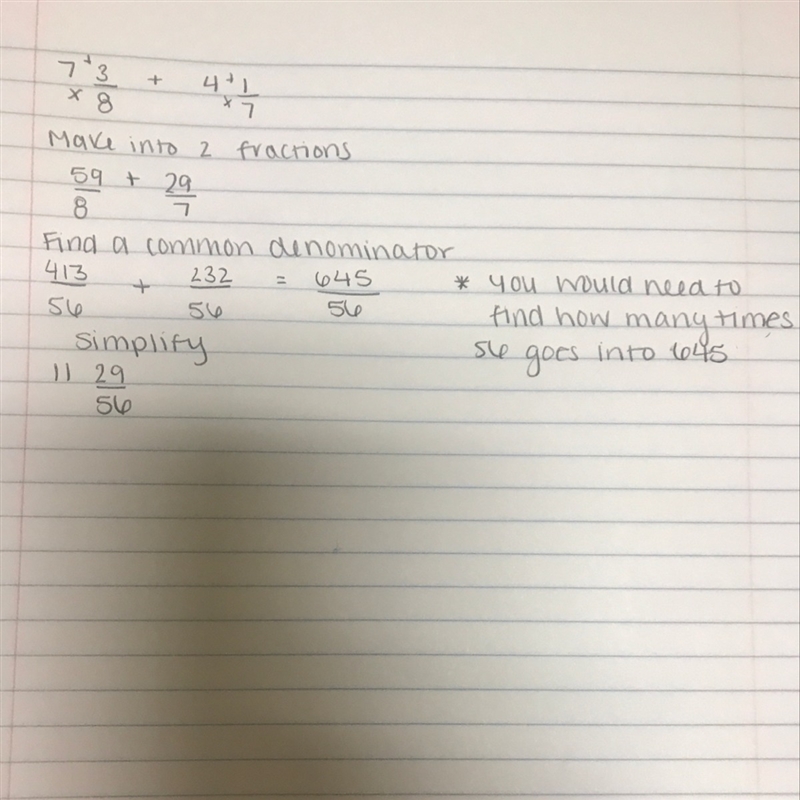 7 + 3/8 + 4 + 1/7
× ×
Make into 2 fractions
59/8 + 29/7
Find a common denominator
413/56 + 232/56 = 645/56 * you would need to
find how many times
Simplify 56 goes into 645
11 29/56